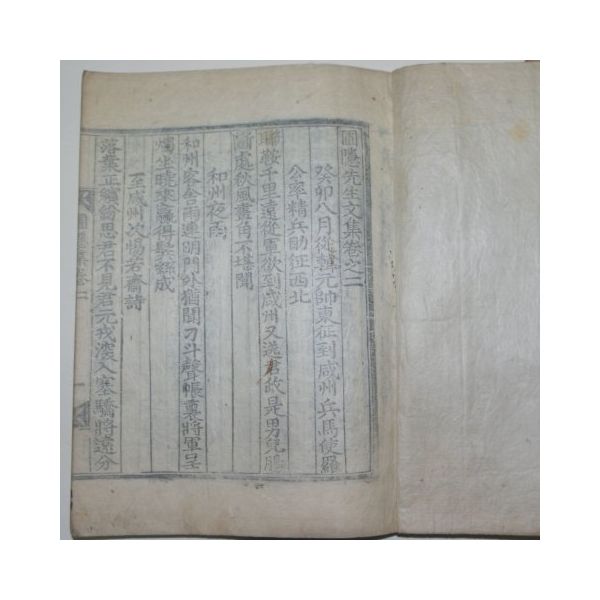 圃隱先生文集卷之二
癸卯八月從韓元帥東征到咸州兵馬使羅
公率精兵助征西北
聯鞍千里遠從軍欲到咸州又送君故是男兒腸
斷處秋風畫角不堪聞
和州夜雨
和州客舍雨連明門外猶聞刁斗聲帳裏將軍呈
燭坐曉來贏得鬂絲成
至咸州次惕若齋詩
落葉正繽紛思君不見君元戎深入塞驕將遠分
圃隱集卷二